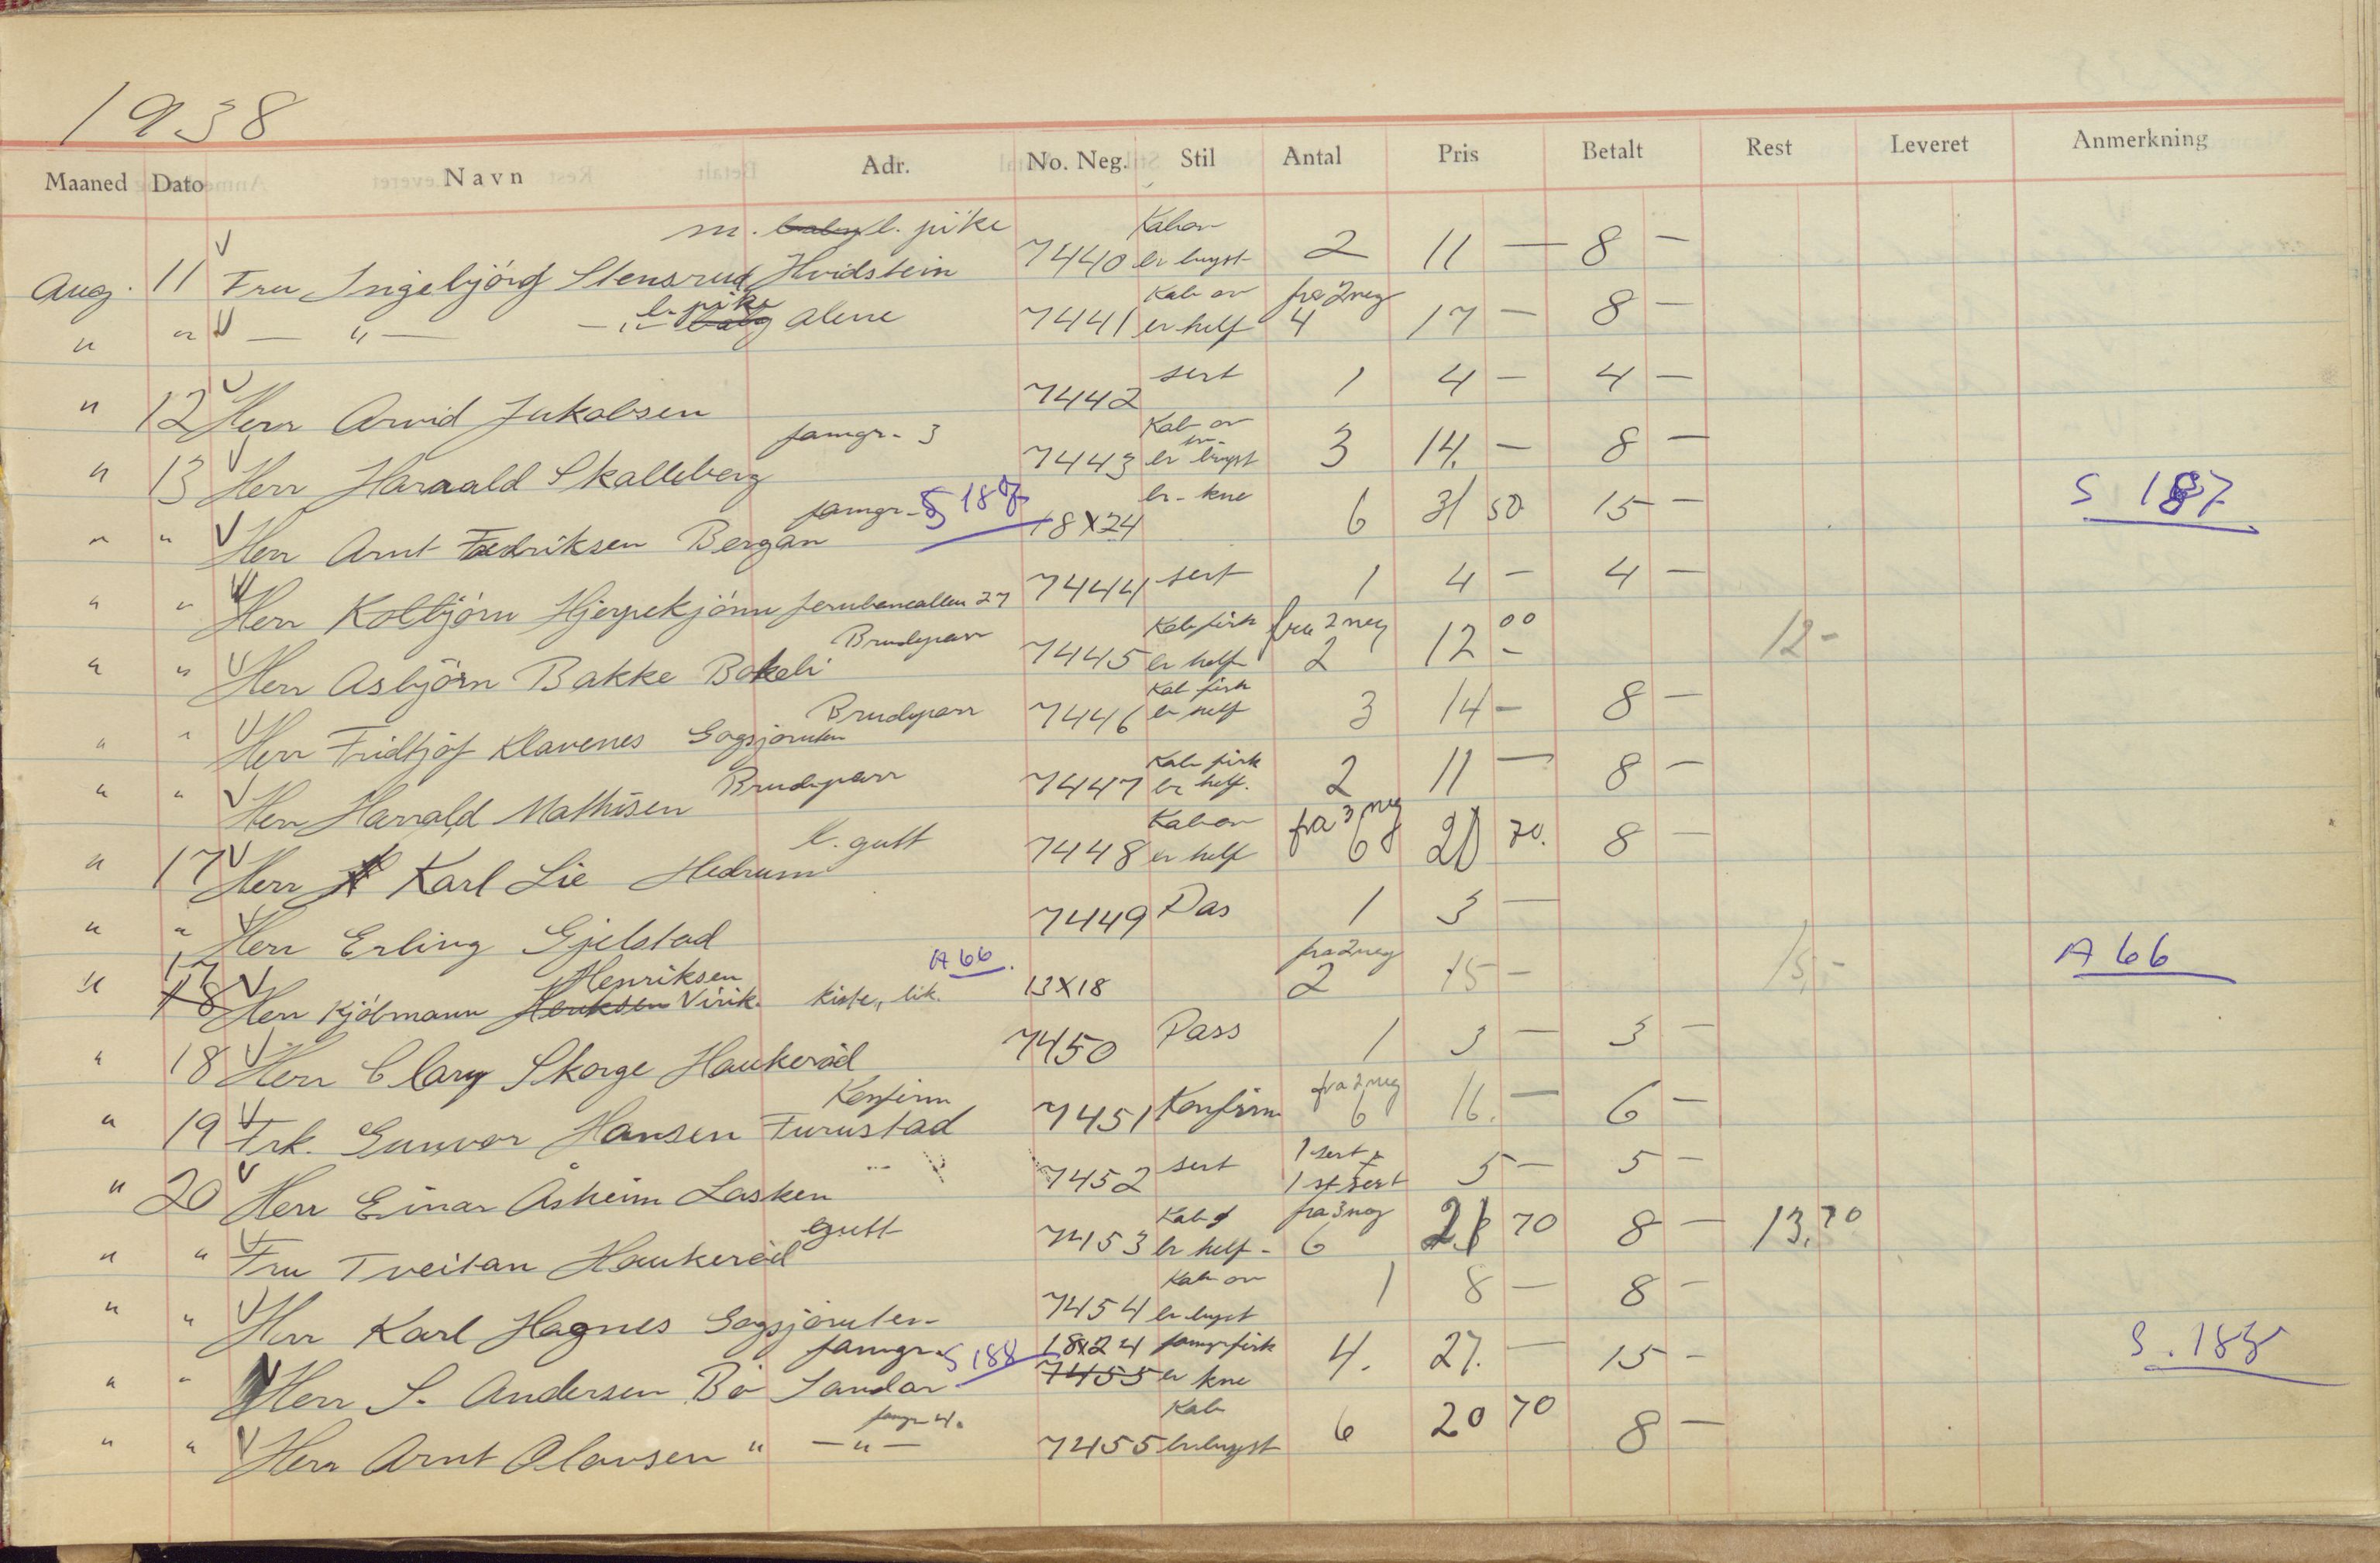 1938
Maaned Dato Navn Adr. No. Neg. Stil Antal Pris Betalt Rest Leveret Anmerkning
m. baby l. pike Kab ov
Aug. 11 V Fru Ingebjörg Stensrud Hvidstein 7440 br bryst 2 11 — 8 —
l. pike Kab ov fra 2 neg
" " V — " — — " — baby alene 7441 br helf 4 17 — 8 —
" 12 V Herr Arvid Jukobsen 7442 sert 1 4 — 4 —
famgr. 3 Kab ov
" 13 V Herr Haraald Skalleberg 7443 br bryst 3 14. — 8 —
famgr. S 187 br. kne
" " V Herr Arnt Fredriksen Bergan 18x24 6 31 50 15 — S 187
" " V Herr Kolbjörn Hjerpekjönn Jernbanealleen 27 7444 sert 1 4 — 4 —
Brudepar Kab firk fra 2 neg
" " V Herr Asbjörn Bakke Bokeli 7445 br helf 2 12 00 12 -
Brudeparr Kab firk
" " V Herr Fridtjof Klavenes Gogsjöruten 7446 br helf 3 14 — 8 —
Brudeparr Kab firk
" " V Herr Harrald Mathisen 7447 br helf. 2 11 — 8 —
l. gutt Kab ov fra 3 neg
" 17 V Herr Karl Lie Hedrum 7448 br helf 6 20 70. 8 —
" " V Herr Erling Gjelstad 7449 Pas 1 3 —
17 Henriksen A 66. fra 2 neg
" 18 V Herr Kjölmann Henksen Virik. kiste, lik. 13x18 2 15 — 15,- A 66
" 18 V Herr Clary Skorge Haukeröd 7450 Pass 1 3 — 3 —
Konfirm fra 2 neg
" 19 V Frk. Gunvor Hansen Furustad 7451 Konfirm 6 16. — 6 —
1 sert +
" 20 V Herr Einar Åsheim Lasken 7452 sert 1 st sert 5 — 5 —
gutt Kab fra 3 neg
" " V Fru Tveitan Haukeröd 7453 br helf - 6 21 70 8 — 13,70
Kab ov
" " V Herr Karl Hagnes Gogsjöruten 7454 br bryst 1 8 — 8 —
famgr. S 188 18x24 famgr firk
" " V Herr S. Andersen Bö Sandar 7455 br kne 4. 27. — 15 — S. 188
famgr 4. Kab
" " V Herr Arnt Olavsen " — " — 7455 br. bryst 6 20 70 8 —